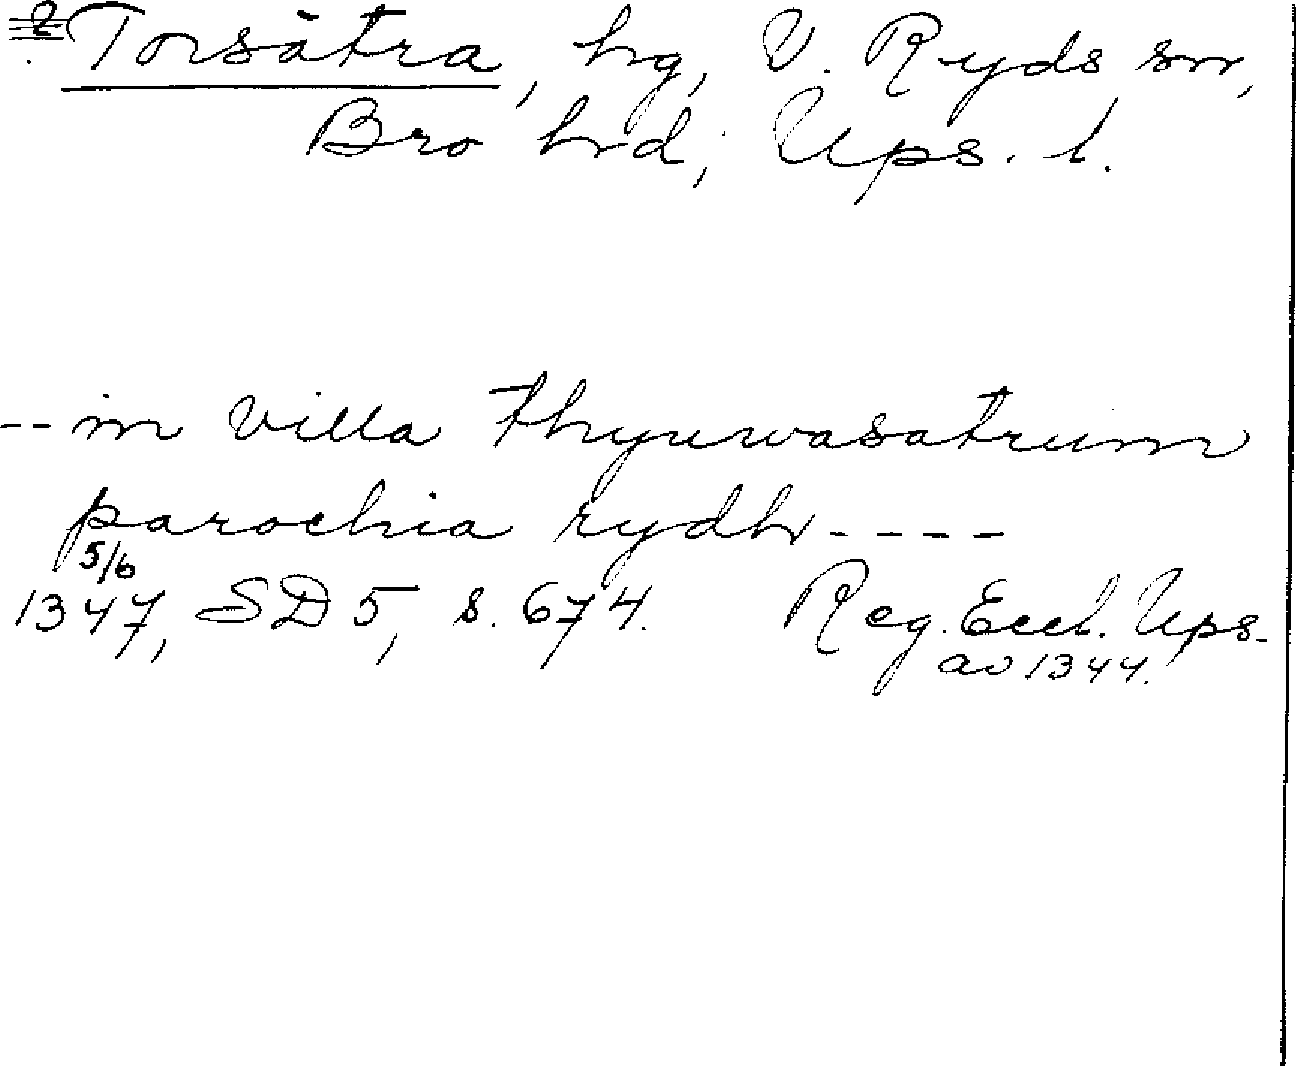 Torsåtra, hg, V. Ryds sn,
Bro hd, Ups. l.
-- in villa thyuwasatrum
parochia rydh ----
5/6
1347, SD 5, s. 674. Reg. Eccl. Ups.
av 1344.